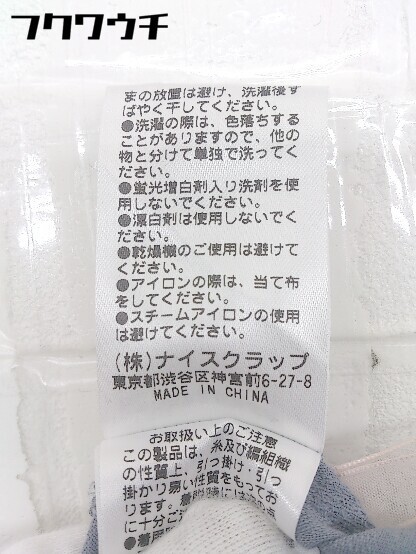 フクワウチ
まの放置は避け、洗濯後す
ばやく干してください。
●洗濯の際は、色落ちする
ことがありますので、他の
物と分けて単独で洗ってく
ださい。
●蛍光増白剤入り洗剤を使
用しないでください。
●漂白剤は使用しないでく
ださい。
●乾燥機のご使用は避けて
ください。
●アイロンの際は、当て布
をしてください。
●スチームアイロンの使用
は避けてください。
(株)ナイスクラップ
東京都渋谷区神宮前6-27-8
MADE IN CHINA
お取扱い上のご注意
この製品は、糸及び編組織
の性質上、引つ掛け・引つ
掛かり易い性質をもってお
ります。着脱時には
十分ご